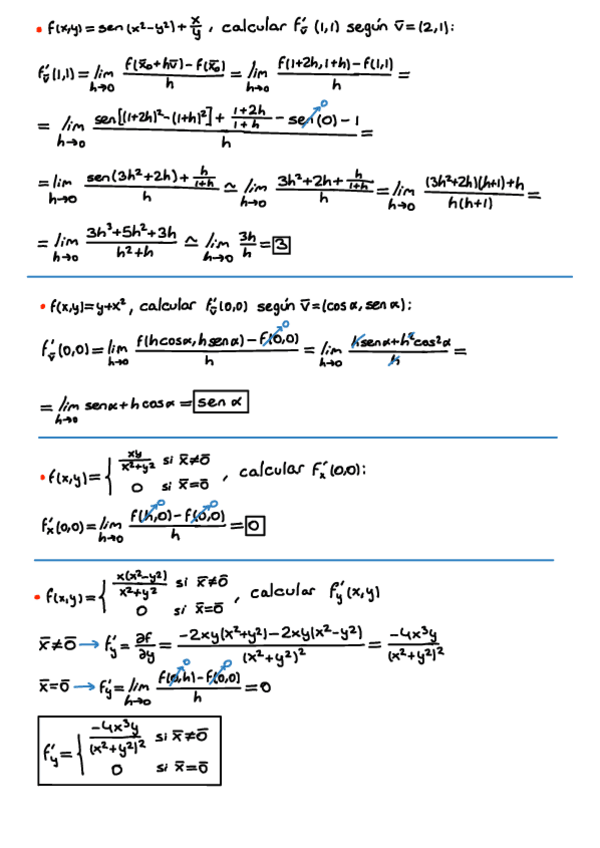 • f(x,y) = sen(x²-y²) + x/y , calcular f'_v̄ (1,1) según v̄=(2,1):
f'_v̄(1,1) = lim_{h→0} (f(x̄₀+hv̄) - f(x̄₀))/h = lim_{h→0} (f(1+2h,1+h) - f(1,1))/h =
= lim_{h→0} (sen[(1+2h)²-(1+h)²] + (1+2h)/(1+h) - sen(0) - 1)/h = 0
= lim_{h→0} (sen(3h²+2h) + h/(1+h))/h ≃ lim_{h→0} (3h²+2h + h/(1+h))/h = lim_{h→0} ((3h²+2h)(h+1)+h)/(h(h+1)) =
= lim_{h→0} (3h³+5h²+3h)/(h²+h) ≃ lim_{h→0} 3h/h = 3
• f(x,y)=y+x², calcular f'_v̄(0,0) según v̄=(cos α, sen α):
f'_v̄(0,0) = lim_{h→0} (f(h cos α, h sen α) - f(0,0))/h = lim_{h→0} (h sen α + h² cos² α)/h = 0
= lim_{h→0} sen α + h cos α = sen α
• f(x,y) = { xy/(x²+y²) si x̄≠0̄ , 0 si x̄=0̄ , calcular F'_x(0,0):
f'_x(0,0) = lim_{h→0} (f(h,0) - f(0,0))/h = 0
• f(x,y) = { x(x²-y²)/(x²+y²) si x̄≠0̄ , 0 si x̄=0̄ , calcular f'_y(x,y)
x̄≠0̄ → f'_y = ∂f/∂y = (-2xy(x²+y²) - 2xy(x²-y²))/(x²+y²)² = -4x³y/(x²+y²)²
x̄=0̄ → f'_y = lim_{h→0} (f(0,h) - f(0,0))/h = 0
f'_y = { -4x³y/(x²+y²)² si x̄≠0̄ , 0 si x̄=0̄